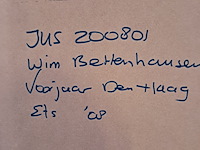 JUS 200801
Wim Bettenhausen
Voorjaar Den Haag
Ets '08